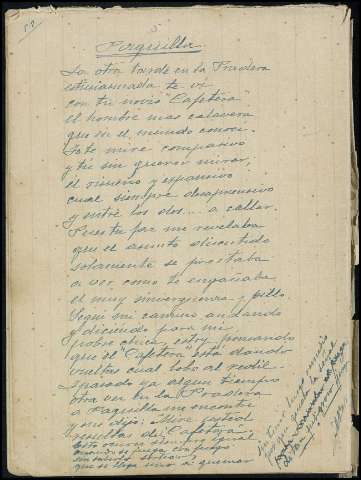 Paquilla
La otra tarde en la Pradera
ensimismada te vi
con tu novio "Cafetera"
el hombre mas calavera
que en el mundo conoci.
Yo te mire compasivo
y tu sin querer mirar,
el risueño y expansivo
cual siempre desaprensivo
y entre los dos... a callar.
Puesta faz me revelaba
que el asunto discutido
solamente se prestaba
a ver, como te engañaba
el muy sinvergüenza y pillo.
Segui mi camino andando
y diciendo para mi,
pobre chica, estoy pensando
que el "Cafetera" esta dando
vueltas cual lobo al redil.
Y pasado ya algun tiempo
otra vez en la Pradera
a Paquilla me encontre
y me dijo: Mire usted
resultas del "Cafetera".
Esto ocurre siempre igual
cuando se juega con fuego
sin saberlo
que se llega uno a quemar